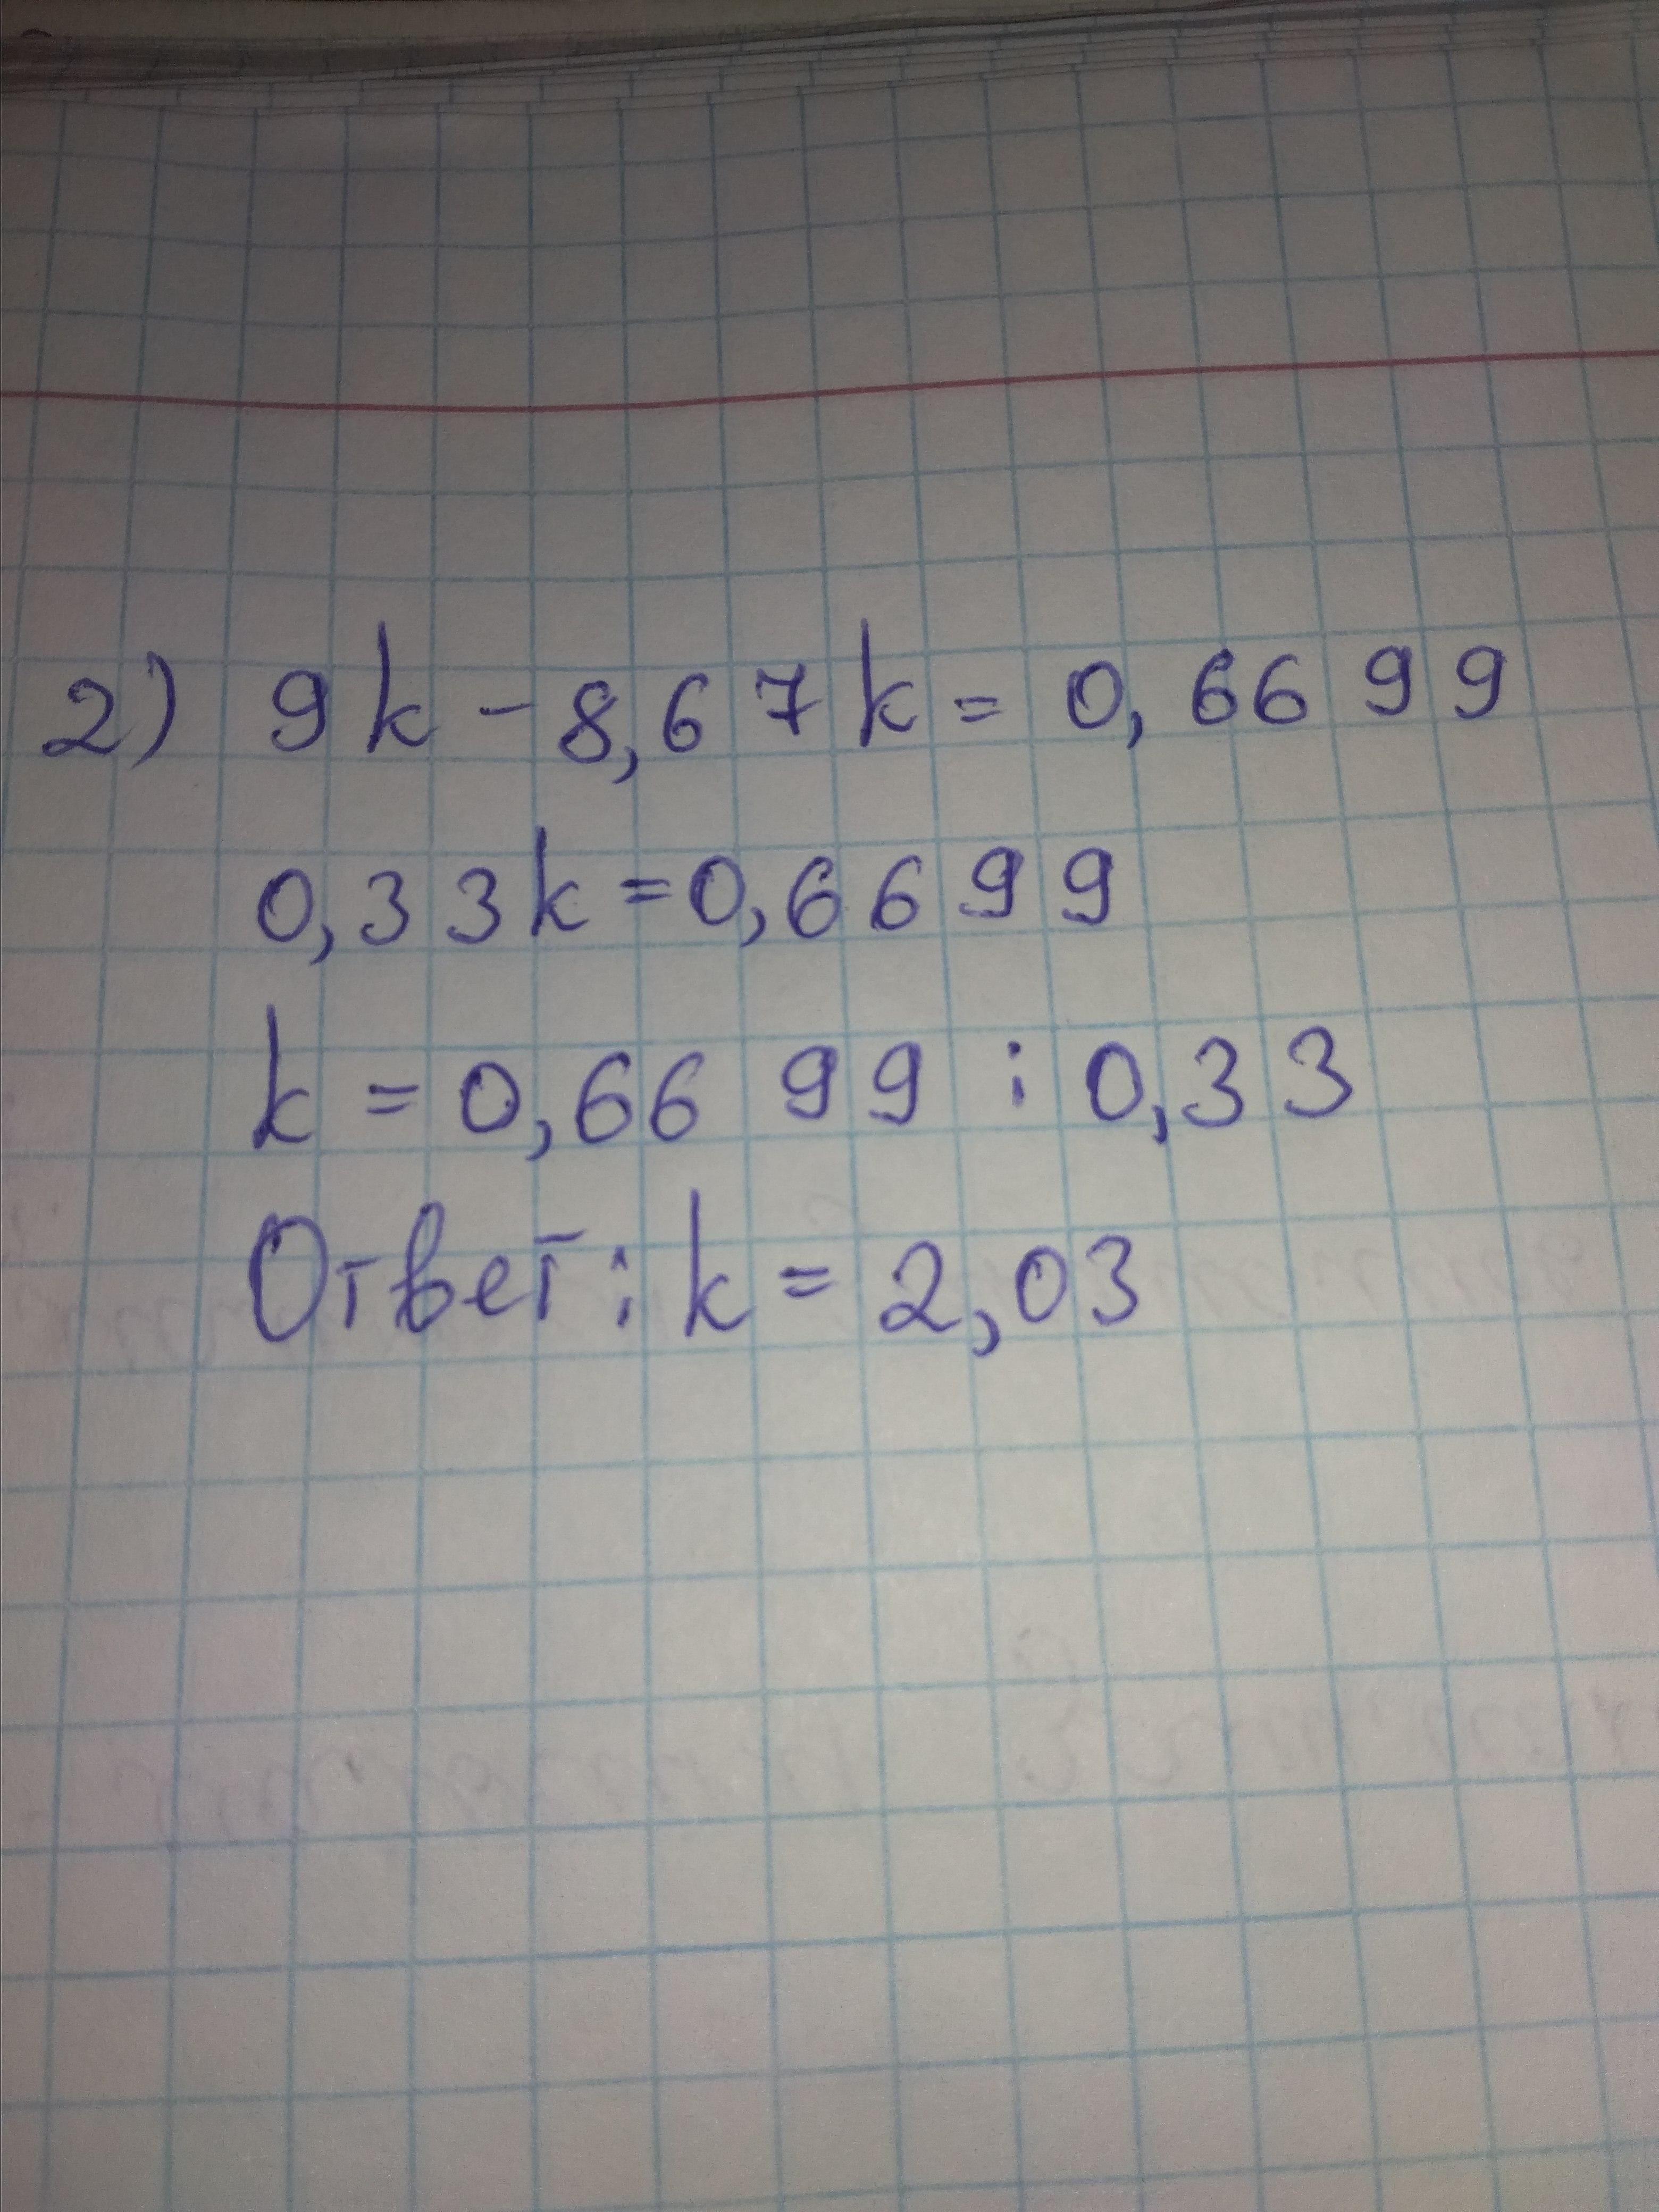 2) 9k - 8,67k = 0,6699
0,33k = 0,6699
k = 0,6699 : 0,33
Ответ: k = 2,03